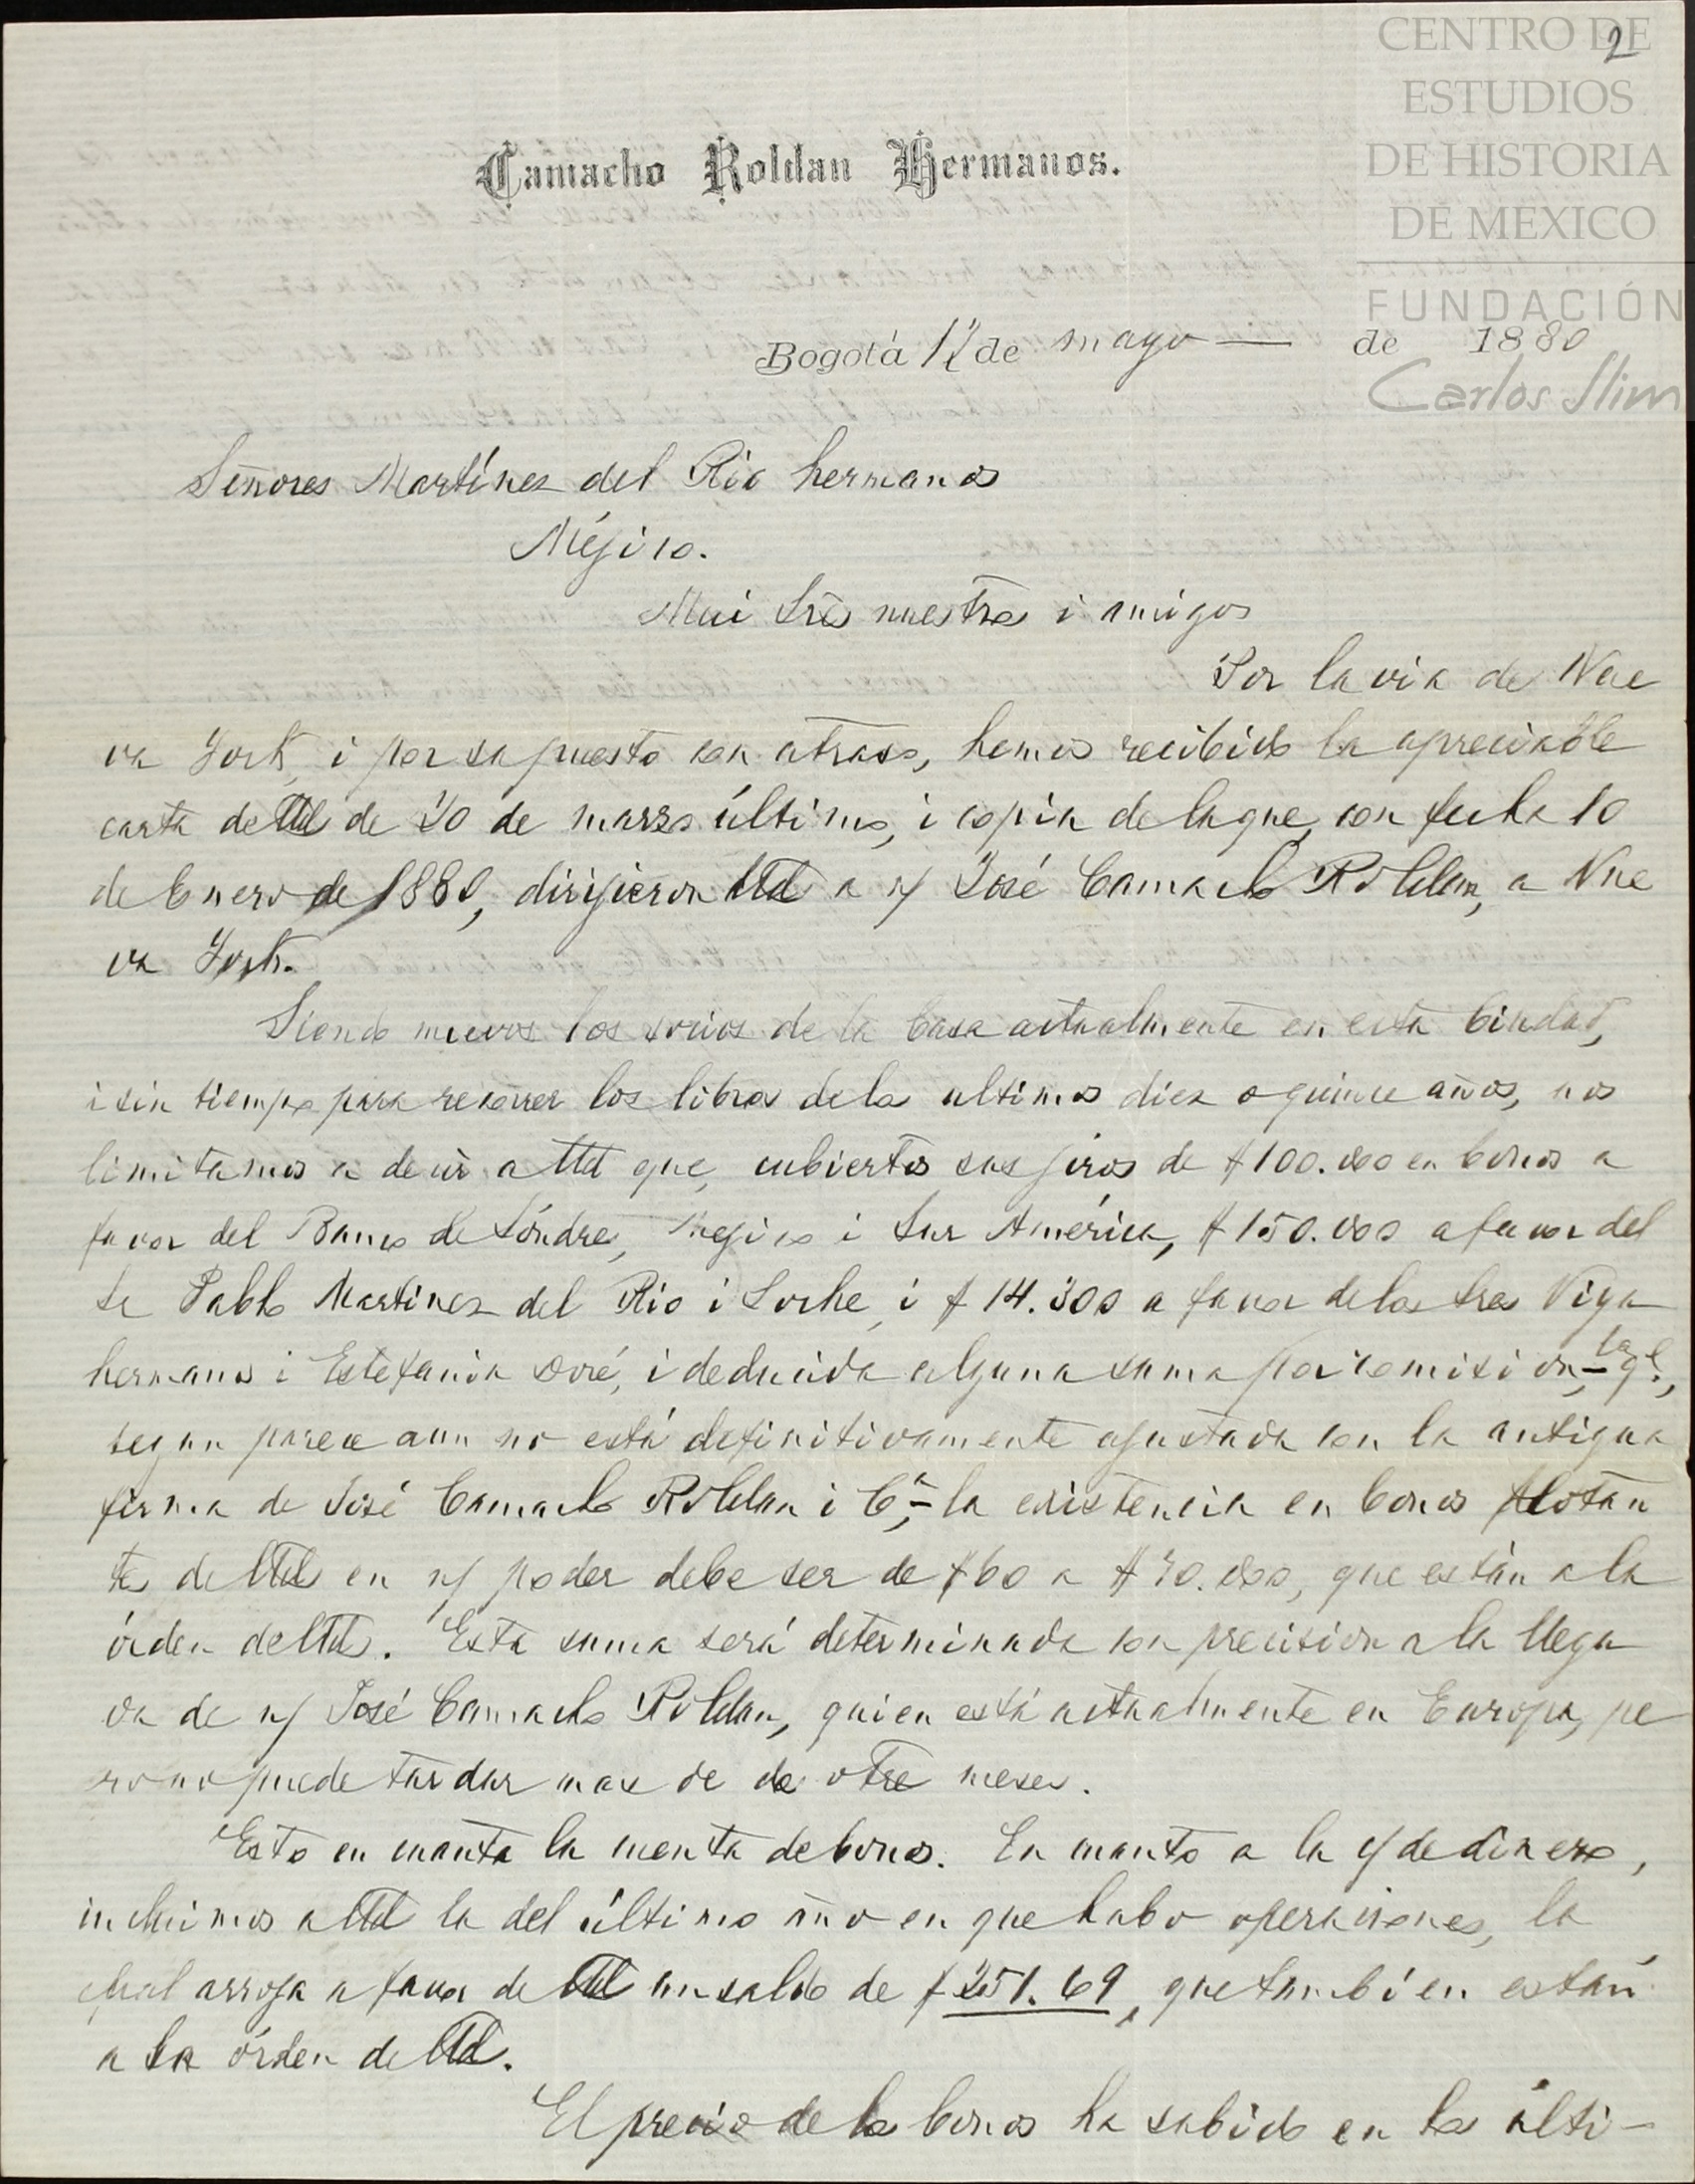 2
CENTRO DE
ESTUDIOS
DE HISTORIA
DE MEXICO
FUNDACIÓN
Carlos Slim
Camacho Roldan Hermanos.
Bogotá 12 de mayo — de 1880
Señores Martínez del Rio hermanos
Méjico.
Mui Sres nuestros i amigos
Por la via de Nue
va York, i por supuesto con atraso, hemos recibido la apreciable
carta de Uds de 20 de marzo último, i copia de la que, con fecha 10
de Enero de 1880, dirijieron Uds a n/ José Camacho Roldan, a Nue
va York.
Siendo nuevos los socios de la Casa actualmente en esta Ciudad,
i sin tiempo para recorrer los libros de los ultimos diez o quince años, nos
limitamos a decir a Uds que, cubiertos sus jiros de $100.000 en bonos a
favor del Banco de Lóndres, Mejico i Sur América, $150.000 a favor del
Sr Pablo Martinez del Rio i Soche, i $14.300 a favor de los Sres Viga
hermanos i Estefania, i deducida alguna suma por comision, – la ql.,
segun parece aun no está definitivamente ajustada con la antigua
firma de José Camacho Roldan i Ca, – la existencia en bonos flotan
tes de Uds en n/ poder debe ser de $60 a $70.000, que están a la
órden de Uds. Esta suma será determinada con precision a la llega
da de n/ José Camacho Roldan, quien está actualmente en Europa, pe
ro no puede tardar mas de dos o tres meses.
Esto en cuanto la cuenta de bonos. En cuanto a la c/ de dinero,
incluimos a Uds la del último año en que hubo operaciones, la
cual arroja a favor de Uds un saldo de $251.69, que tambíen están
a la órden de Uds.
El precio de los bonos ha subido en los últi-